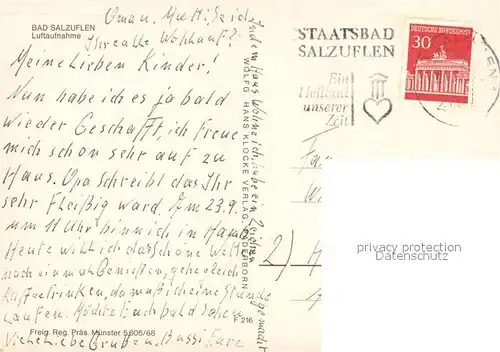 BAD SALZUFLEN
Luftaufnahme
Oma u. Mutti! Seid
Ihr alle Wohlauf?
Meine Lieben Kinder!
Nun habe ich es ja bald
wieder Geschafft, ich Freue
mich schon sehr auf zu
Haus. Opa schreibt das Ihr
sehr Fleißig ward. Am 23.9.
um 11 Uhr bin ich in Hamb.
Heute will ich das schöne Wett
noch einmal Genießen, gehe gleich
Kaffetrinken, da muß ich eine Stunde
Laufen. Möchte Euch bald sehen
Viele Liebe Grüße u. Bussi Eure
Freig. Reg. Präs. Münster 5 605/68
In dem Haus Wohne ich, habe ein Zeichen
gemacht
WOLFG. HANS KLOCKE VERLAG, PADERBORN
F 216
STAATSBAD
SALZUFLEN
Ein
Heilbad
unserer
Zeit
DEUTSCHE BUNDESPOST
30
2)
privacy protection
Datenschutz